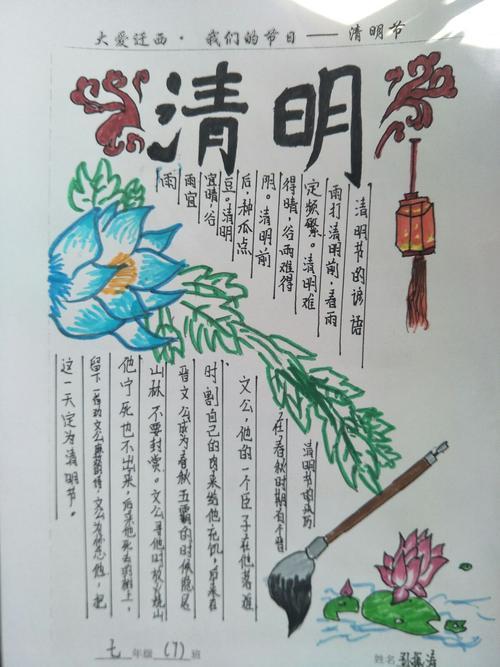 大爱迁西· 我们的节日——清明节
清明
清明节的谚语
雨打清明前,春雨
定频繁。清明难
得晴,谷雨难得
阴。清明前
后,种瓜点
豆。清明
宜晴,谷
雨宜
雨
清明节的
在了春秋时期有个晋
文公,他的一个臣子在他落难
时割自己的肉来给他充饥,后来在
晋文公成为春秋五霸的时候隐居
山林不要封赏。文公寻他时放火烧山
他宁死也不出来,后来他死去的树上,
留下一
这一天定为清明节。
七年级(7)班
姓名